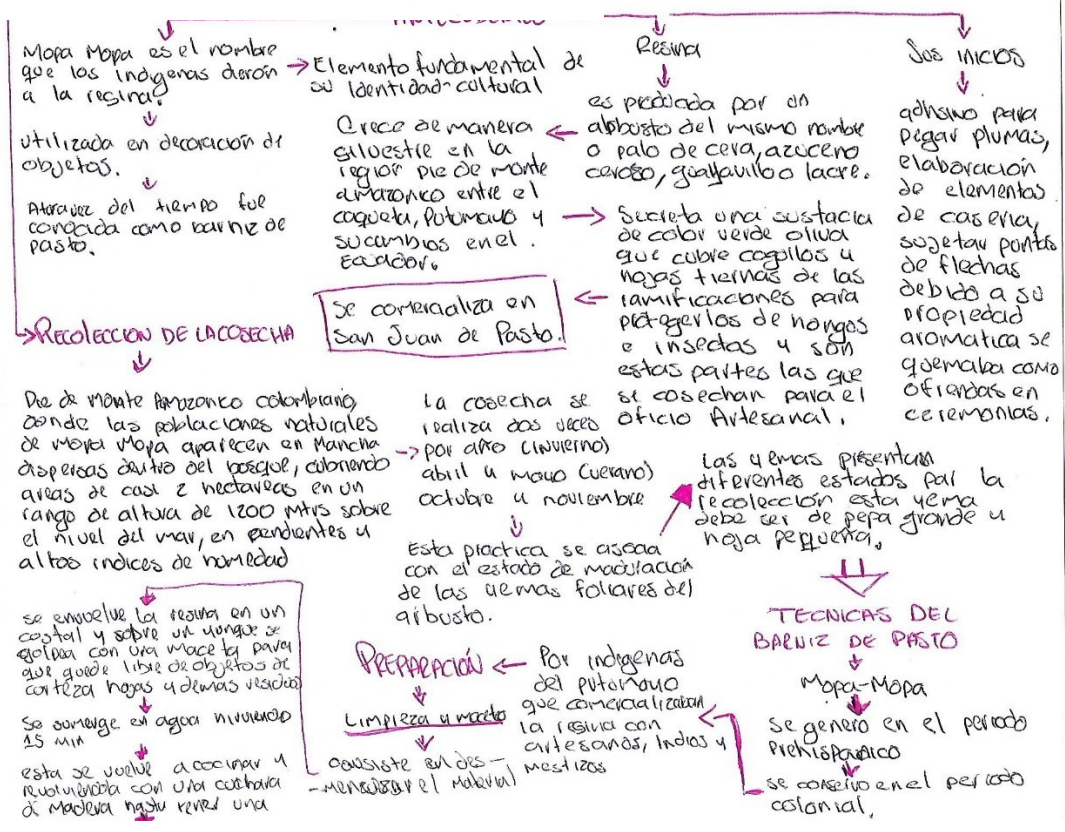 Mopa Mopa es el nombre
que los indigenas dierón
a la resina.
utilizada en decoración de
objetos.
Atoravez del tiempo fue
conocida como barniz de
pasto.
Elemento fundamental de
su identidad-cultural
Resina
es producida por un
del mismo nombre
o palo de cera, azuceno
ceroso, guayavillo o lacre.
Crece de manera
silvestre en la
región pie de monte
amazonico entre el
caqueta, Putumayo y
sucumbios en el.
Ecuador.
Secreta una sustacia
de color verde oliva
que cubre cogollos y
hojas tiernas de las
ramificaciones para
protegerlos de hongos
e insectos y son
estas partes las que
se cosechan para el
oficio Artesanal.
Se comercializa en
San Juan de Pasto.
Sus inicios
para
pegar plumas,
elaboración
de elementos
de caseria,
sujetar puntas
de flechas
debido a su
propiedad
aromatica se
quemaba como
ofrendas en
ceremonias.
RECOLECCION DE LA COSECHA
Pie de monte Amazonico colombiano,
donde las poblaciones naturales
de mopa Mopa aparecen en Mancha
dispersas dentro del bosque, cubriendo
areas de casi 2 hectareas en un
rango de altura de 1200 Mtrs sobre
el nivel del mar, en pendientes y
altos indices de humedad
La cosecha se
realiza dos veces
por año (invierno)
abril y mayo (verano)
octubre y noviembre
Esta practica se asocia
con el estado de
de las yemas foliares del
arbusto.
Las yemas presentan
diferentes estados par la
recolección esta yema
debe ser de pepa grande y
hoja pequeña.
TECNICAS DEL
BARNIZ DE PASTO
Mopa-Mopa
Se genero en el periodo
Prehispanico
se conservo en el periodo
colonial.
Por indigenas
del putumayo
que comercializaban
la resina con
artesanos, Indios y
mestizos
PREPARACIÓN
Limpieza y maceto
consiste en des-
-menuzar el Material
se envuelve la resina en un
costal y sobre un yunque se
golpea con una maceta para
que quede libre de objetos de
corteza hojas y demas residuos
Se sumerge en agua hirviendo
15 Min
esta se vuelve a cocinar y
revolviendola con una cuchara
de Madera hasta tener una